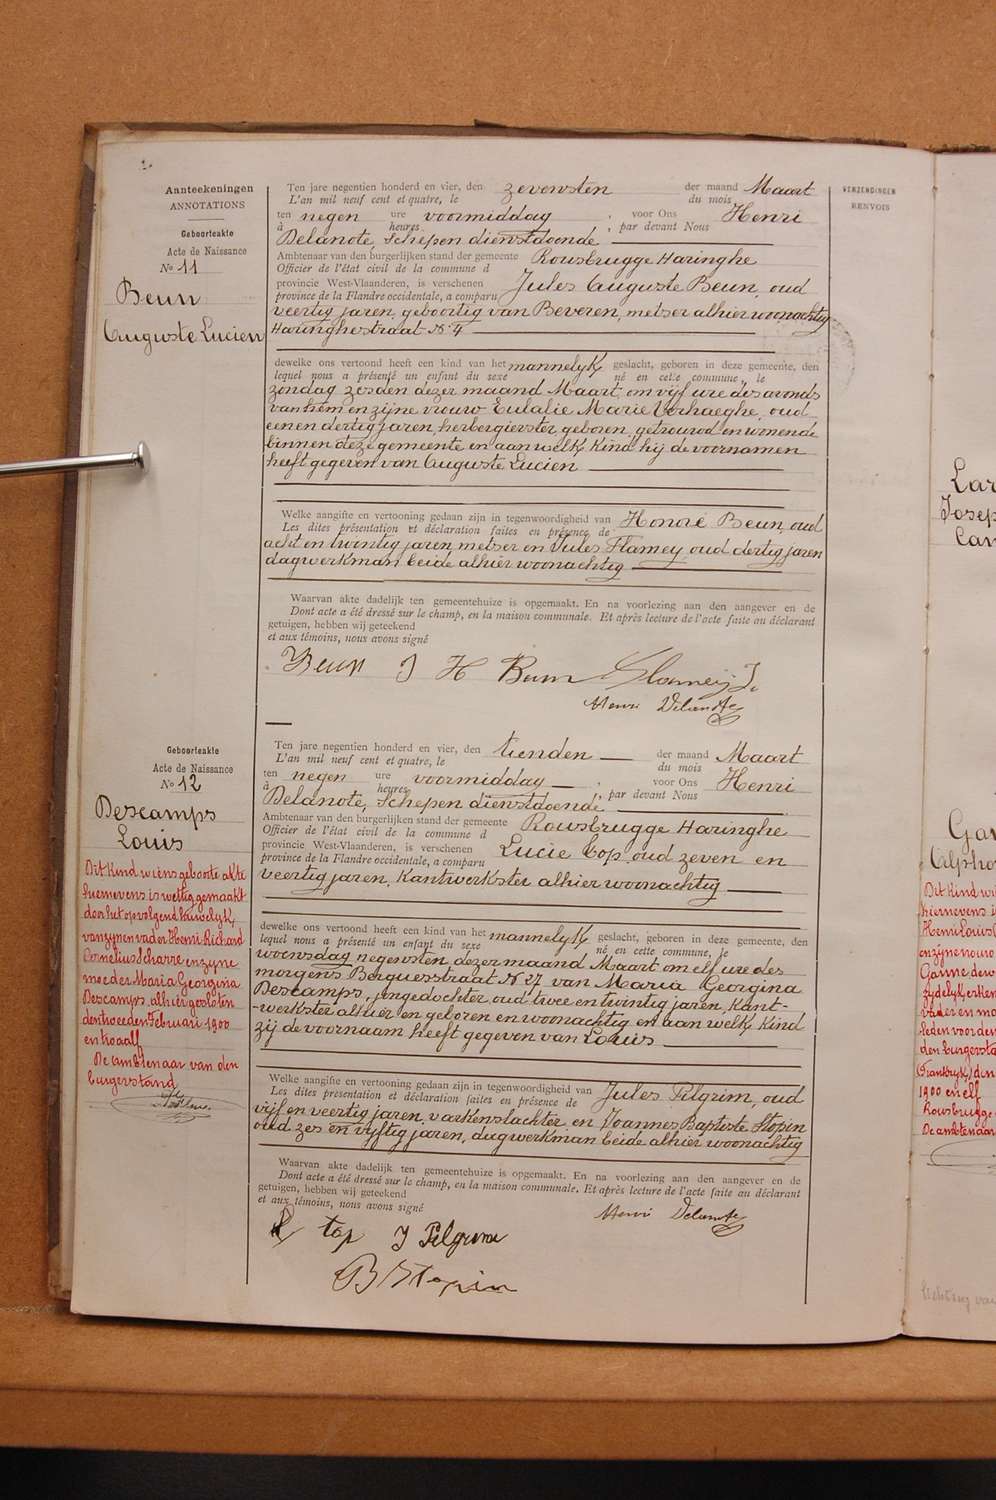 Aanteekeningen
ANNOTATIONS
Geboorteakte
Acte de Naissance
No 11
Beun
Auguste Lucien
Ten jare negentien honderd en vier, den zevensten der maand Maart
L'an mil neuf cent et quatre, le du mois
ten negen ure voormiddag ; voor Ons Henri
à heures par devant Nous
Delanote, Schepen dienstdoende
Ambtenaar van den burgerlijken stand der gemeente Rousbrugge Haringhe
Officier de l'état civil de la commune d
provincie West-Vlaanderen, is verschenen Jules Auguste Beun, oud
province de la Flandre occidentale, a comparu
veertig jaren, geboortig van Beveren, metser alhier woonachtig
Haringhestraat No 4
dewelke ons vertoond heeft een kind van het mannelyk geslacht, geboren in deze gemeente, den
lequel nous a présenté un enfant du sexe né en cette commune, le
zondag zesden dezer maand Maart, om vijf ure des avonds
van hem en zijne vrouw Eulalie Marie Verhaeghe, oud
eenen dertig jaren, herbergierster, geboren, getrouwd en wonende
binnen deze gemeente en aan welk kind hij de voornamen
heeft gegeven van Auguste Lucien
Welke aangifte en vertooning gedaan zijn in tegenwoordigheid van Honoré Beun, oud
Les dites présentation et déclaration faites en présence de
acht en twintig jaren, metser en Jules Flamey oud dertig jaren
dagwerkman, beide alhier woonachtig
Waarvan akte dadelijk ten gemeentehuize is opgemaakt. En na voorlezing aan den aangever en de
Dont acte a été dressé sur le champ, en la maison communale. Et après lecture de l'acte faite au déclarant
getuigen, hebben wij geteekend
et aux témoins, nous avons signé
Beun J H Beun Flameij J.
Henri Delanote
Geboorteakte
Acte de Naissance
No 12
Descamps
Louis
Dit kind wiens geboorte akte
hiernevens is wettig gemaakt
door het opvolgend huwelijk
van zynen vader Henri Richard
Cornelius Charre en zyne
moeder Maria Georgina
Descamps, alhier gesloten
den tweeden Februari 1900
en twaalf
De ambtenaar van den
burgerstand
Ten jare negentien honderd en vier, den tienden der maand Maart
L'an mil neuf cent et quatre, le du mois
ten negen ure voormiddag ; voor Ons Henri
à heures ; par devant Nous
Delanote, Schepen dienstdoende
Ambtenaar van den burgerlijken stand der gemeente Rousbrugge Haringhe
Officier de l'état civil de la commune d
provincie West-Vlaanderen, is verschenen Lucie Cop, oud zeven en
province de la Flandre occidentale, a comparu
veertig jaren, Kantwerkster alhier woonachtig
dewelke ons vertoond heeft een kind van het mannelyk geslacht, geboren in deze gemeente, den
lequel nous a présenté un enfant du sexe né en cette commune, le
woensdag negensten dezer maand Maart om elf ure des
morgens Berguesstraat No 27 van Maria Georgina
Descamps, jongedochter, oud twee en twintig jaren, Kant-
-werkster alhier en geboren en woonachtig en aan welk kind
zij de voornaam heeft gegeven van Louis
Welke aangifte en vertooning gedaan zijn in tegenwoordigheid van Jules Pilgrim, oud
Les dites présentation et déclaration faites en présence de
vijf en veertig jaren, varkenslachter en Joannes Baptiste Stopin
oud zes en vyftig jaren, dagwerkman beide alhier woonachtig
Waarvan akte dadelijk ten gemeentehuize is opgemaakt. En na voorlezing aan den aangever en de
Dont acte a été dressé sur le champ, en la maison communale. Et après lecture de l'acte faite au déclarant
getuigen, hebben wij geteekend
et aux témoins, nous avons signé
Henri Delanote
J Pilgrim
B Stopin
VERZENDINGEN
RENVOIS
Lar
Josep
Cam
Gan
Alpho
Dit kind wi
hiernevens i
Henri Louis
en zijne vrouw
1900 en elf
Rousbrugge
De ambtenaar